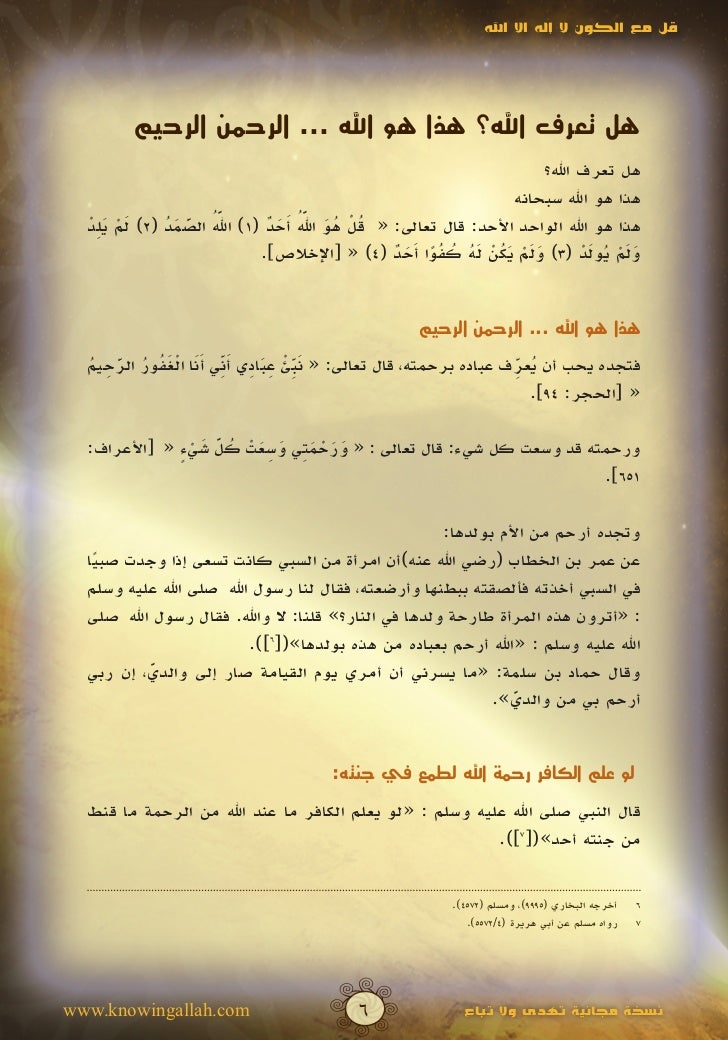 قل مع الكون لا إله الا الله
هل تعرف الله؟ هذا هو الله ... الرحمن الرحيم
هل تعرف الله؟
هذا هو الله سبحانه
هذا هو الله الواحد الأحد: قال تعالى: « قُلْ هُوَ اللَّهُ أَحَدٌ (١) اللَّهُ الصَّمَدُ (٢) لَمْ يَلِدْ
وَلَمْ يُولَدْ (٣) وَلَمْ يَكُنْ لَهُ كُفُوًا أَحَدٌ (٤) » [الإخلاص].
هذا هو الله ... الرحمن الرحيم
فتجده يحب أن يُعرِّف عباده برحمته، قال تعالى: « نَبِّئْ عِبَادِي أَنِّي أَنَا الْغَفُورُ الرَّحِيمُ
» [الحجر: ٩٤].
ورحمته قد وسعت كل شيء: قال تعالى : « وَرَحْمَتِي وَسِعَتْ كُلَّ شَيْءٍ » [الأعراف:
٦٥١].
وتجده أرحم من الأم بولدها:
عن عمر بن الخطاب (رضي الله عنه)أن امرأة من السبي كانت تسعى إذا وجدت صبيًا
في السبي أخذته فألصقته ببطنها وأرضعته، فقال لنا رسول الله صلى الله عليه وسلم
: «أترون هذه المرأة طارحة ولدها في النار؟» قلنا: لا والله. فقال رسول الله صلى
الله عليه وسلم : «الله أرحم بعباده من هذه بولدها»([٦]).
وقال حماد بن سلمة: «ما يسرني أن أمري يوم القيامة صار إلى والديّ، إن ربي
أرحم بي من والديّ».
لو علم الكافر رحمة الله لطمع في جنته:
قال النبي صلى الله عليه وسلم : «لو يعلم الكافر ما عند الله من الرحمة ما قنط
من جنته أحد»([٧]).
٦ أخرجه البخاري (٩٩٩٥)، ومسلم (٤٥٧٢).
٧ رواه مسلم عن أبي هريرة (٥٥٧٢/٤).
نسخة مجانية تهدى ولا تباع
٦
www.knowingallah.com